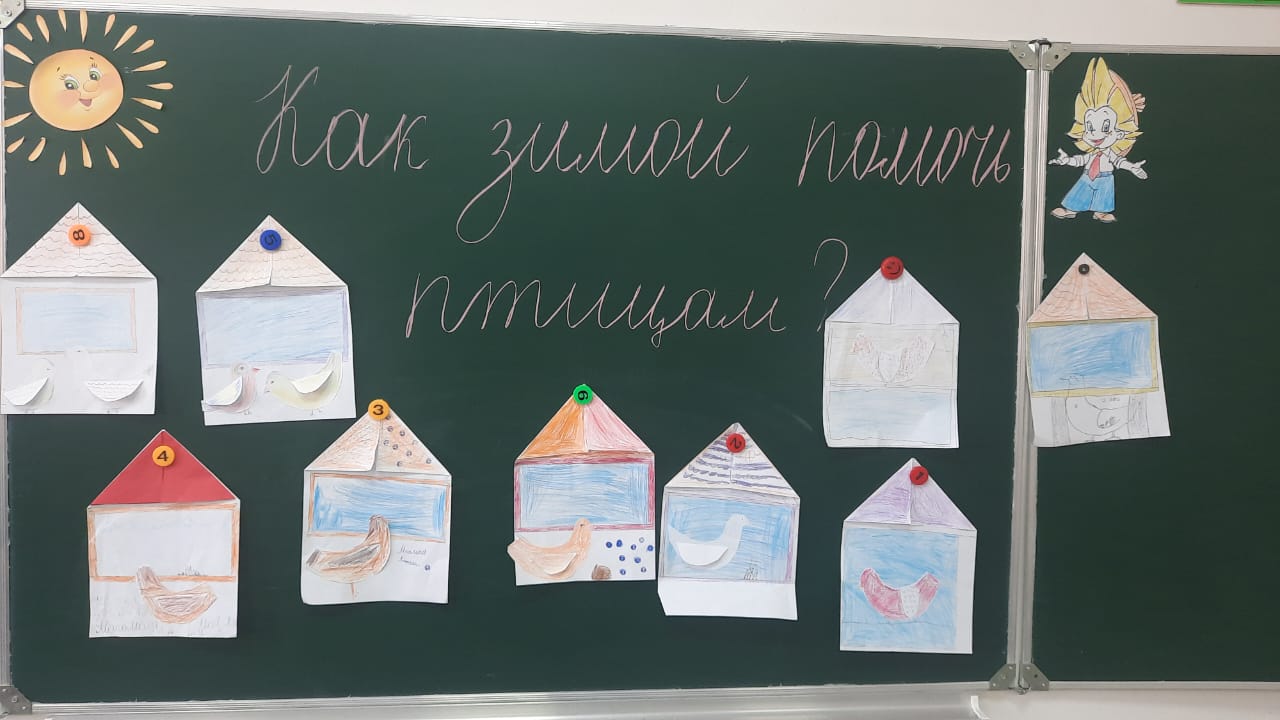 Как зимой помочь
птицам?
8
5
3
4
6
2
1